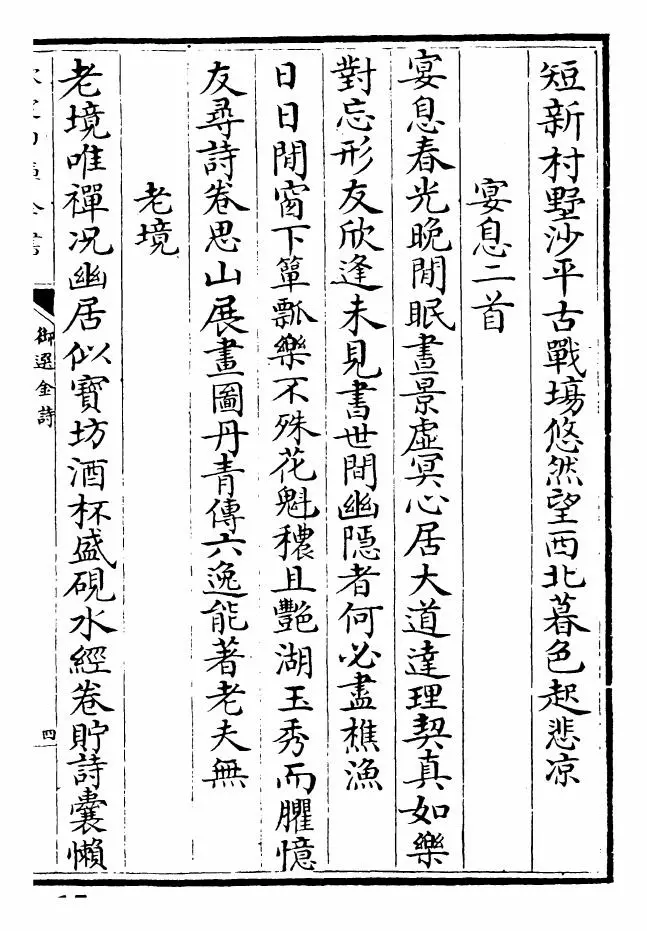 短新村墅沙平古戰塲悠然望西北暮色起悲凉
宴息二首
宴息春光晚閒眠晝景虛冥心居大道達理契真如樂
對忘形友欣逢未見書世間幽隠者何必盡樵漁
日日閒窗下簞瓢樂不殊花魁穠且艷湖玉秀而臞憶
友尋詩卷思山展畫圖丹青傳六逸能著老夫無
老境
老境唯禪况幽居似寳坊酒杯盛硯水經卷貯詩囊懶
御選金詩
四